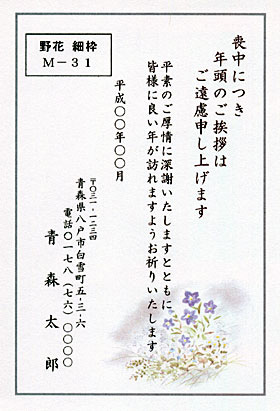 野花 細枠
M－31
喪中につき
年頭のご挨拶は
ご遠慮申し上げます
平素のご厚情に深謝いたしますとともに
皆様に良い年が訪れますようお祈りいたします
平成〇〇年〇〇月
〒〇三一-一二三四
青森県八戸市白雪町五-三-六
電話〇一七八（七六）〇〇〇〇
青森太郎